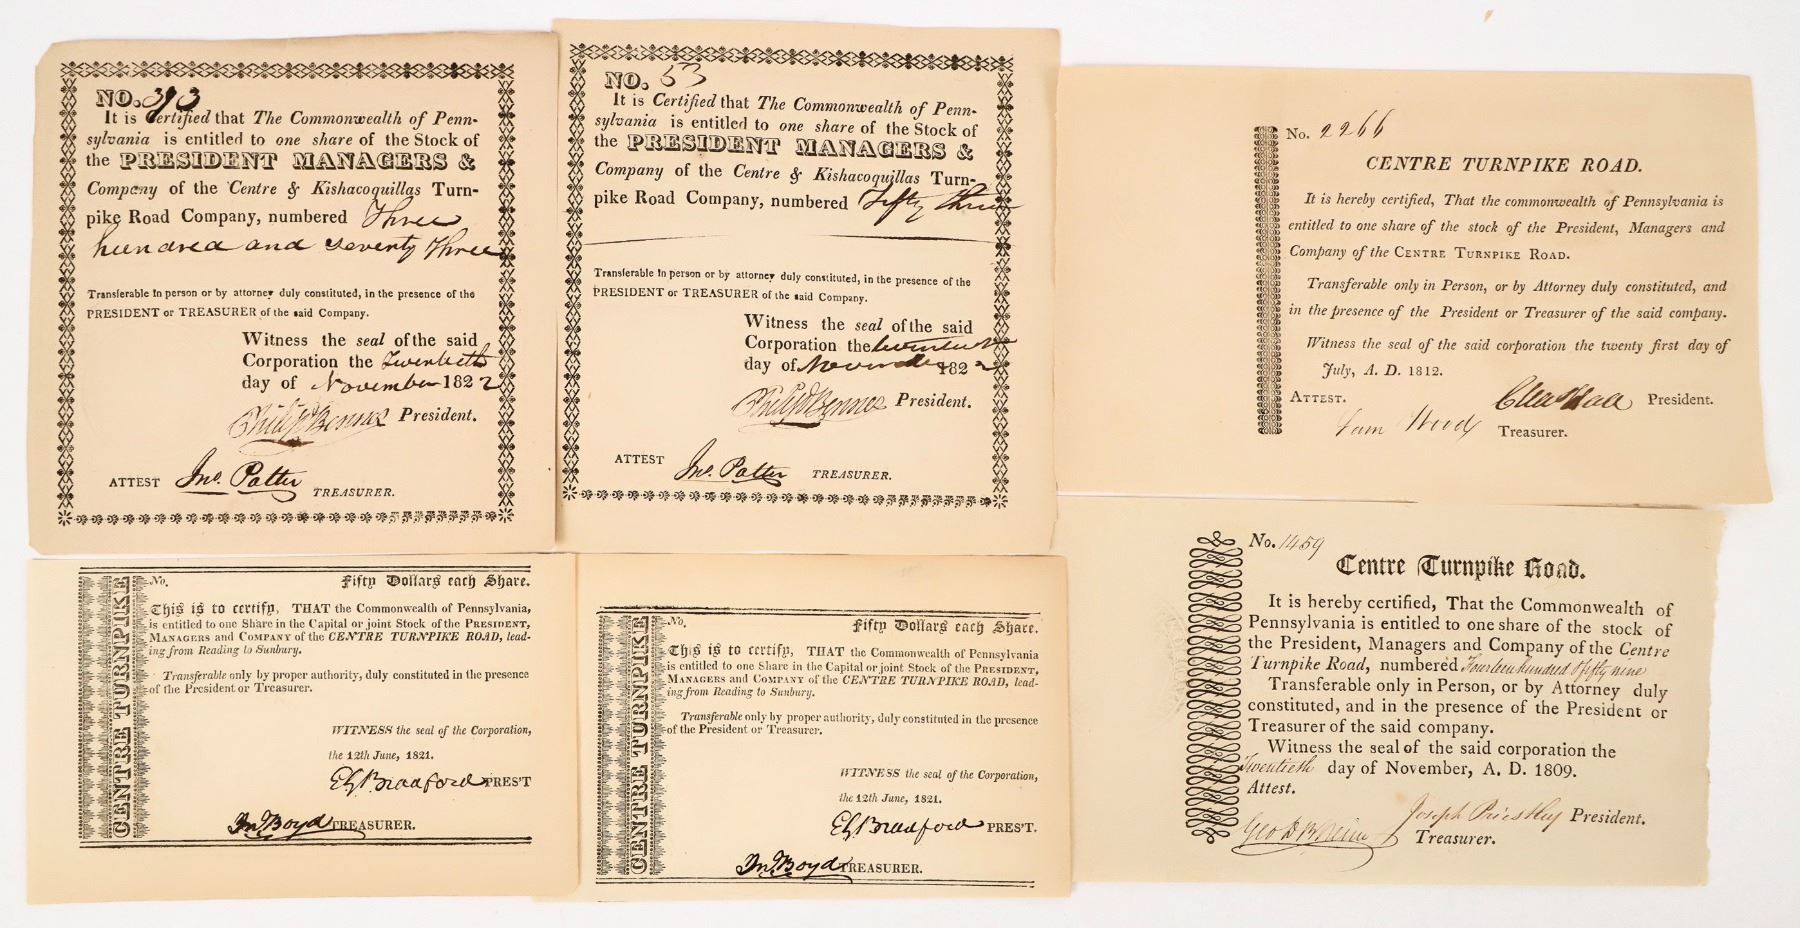 NO. 373
It is Certified that The Commonwealth of Penn-
sylvania is entitled to one share of the Stock of
the PRESIDENT MANAGERS &
Company of the Centre & Kishacoquillas Turn-
pike Road Company, numbered Three
hundred and seventy Three
Transferable In person or by attorney duly constituted, in the presence of the
PRESIDENT or TREASURER of the said Company.
Witness the seal of the said
Corporation the Twentieth
day of November 1822
Philip Benner President.
ATTEST Jno. Potter TREASURER.
NO. 53
It is Certified that The Commonwealth of Penn-
sylvania is entitled to one share of the Stock of
the PRESIDENT MANAGERS &
Company of the Centre & Kishacoquillas Turn-
pike Road Company, numbered Fifty three
Transferable In person or by attorney duly constituted, in the presence of the
PRESIDENT or TREASURER of the said Company.
Witness the seal of the said
Corporation the twentieth
day of November 1822
Philip Benner President.
ATTEST Jno. Potter TREASURER.
No. 2266
CENTRE TURNPIKE ROAD.
It is hereby certified, That the commonwealth of Pennsylvania is
entitled to one share of the stock of the President, Managers and
Company of the CENTRE TURNPIKE ROAD.
Transferable only in Person, or by Attorney duly constituted, and
in the presence of the President or Treasurer of the said company.
Witness the seal of the said corporation the twenty first day of
July, A. D. 1812.
ATTEST. Chas Hall President.
Sam Wood Treasurer.
CENTRE TURNPIKE
No. Fifty Dollars each Share.
This is to certify, THAT the Commonwealth of Pennsylvania,
is entitled to one Share in the Capital or joint Stock of the PRESIDENT,
MANAGERS and COMPANY of the CENTRE TURNPIKE ROAD, lead-
ing from Reading to Sunbury.
Transferable only by proper authority, duly constituted in the presence
of the President or Treasurer.
WITNESS the seal of the Corporation,
the 12th June, 1821.
EG Bradford PRES'T
Jn. Boyd TREASURER.
CENTRE TURNPIKE
No. Fifty Dollars each Share.
This is to certify, THAT the Commonwealth of Pennsylvania
is entitled to one Share in the Capital or joint Stock of the PRESIDENT,
MANAGERS and COMPANY of the CENTRE TURNPIKE ROAD, lead-
ing from Reading to Sunbury.
Transferable only by proper authority, duly constituted in the presence
of the President or Treasurer.
WITNESS the seal of the Corporation,
the 12th June, 1821.
EG Bradford PRES'T.
Jn. Boyd TREASURER.
No. 1459
Centre Turnpike Road.
It is hereby certified, That the Commonwealth of
Pennsylvania is entitled to one share of the stock of
the President, Managers and Company of the Centre
Turnpike Road, numbered Fourteen hundred & fifty nine
Transferable only in Person, or by Attorney duly
constituted, and in the presence of the President or
Treasurer of the said company.
Witness the seal of the said corporation the
Twentieth day of November, A. D. 1809.
Attest.
Joseph Priestley President.
Geo Treasurer.